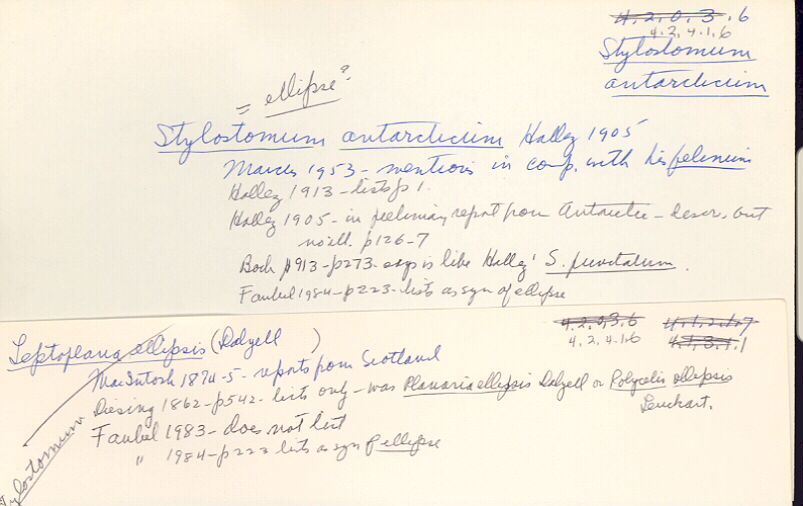 4.2.0.3.6
4.2.4.1.6
Stylostomum
antarcticum
= ellipse?
Stylostomum antarcticum Hallez 1905
Marcus 1953 - mentions in comp. with his felinum
Hallez 1913 - lists p 1.
Hallez 1905 - in preliminary report from Antarctic - descr. but
no ill. p126-7
Bock 1913 - p273 - says is like Hallez' S. punctatum.
Faubel 1984 - p223 - lists as syn of ellipse
4.2.0.3.6 4.1.2.1.7
4.2.4.1.6 4.1.3.1.1
Leptoplana ellipsis (Dalyell )
MacIntosh 1874-5 - reports from Scotland
Diesing 1862 - p542 - lists only - was Planaria ellipsis Dalyell or Polycelis ellipsis
Leuckart.
Faubel 1983 - does not list
" 1984 - p223 lists as syn of ellipse
Stylostomum